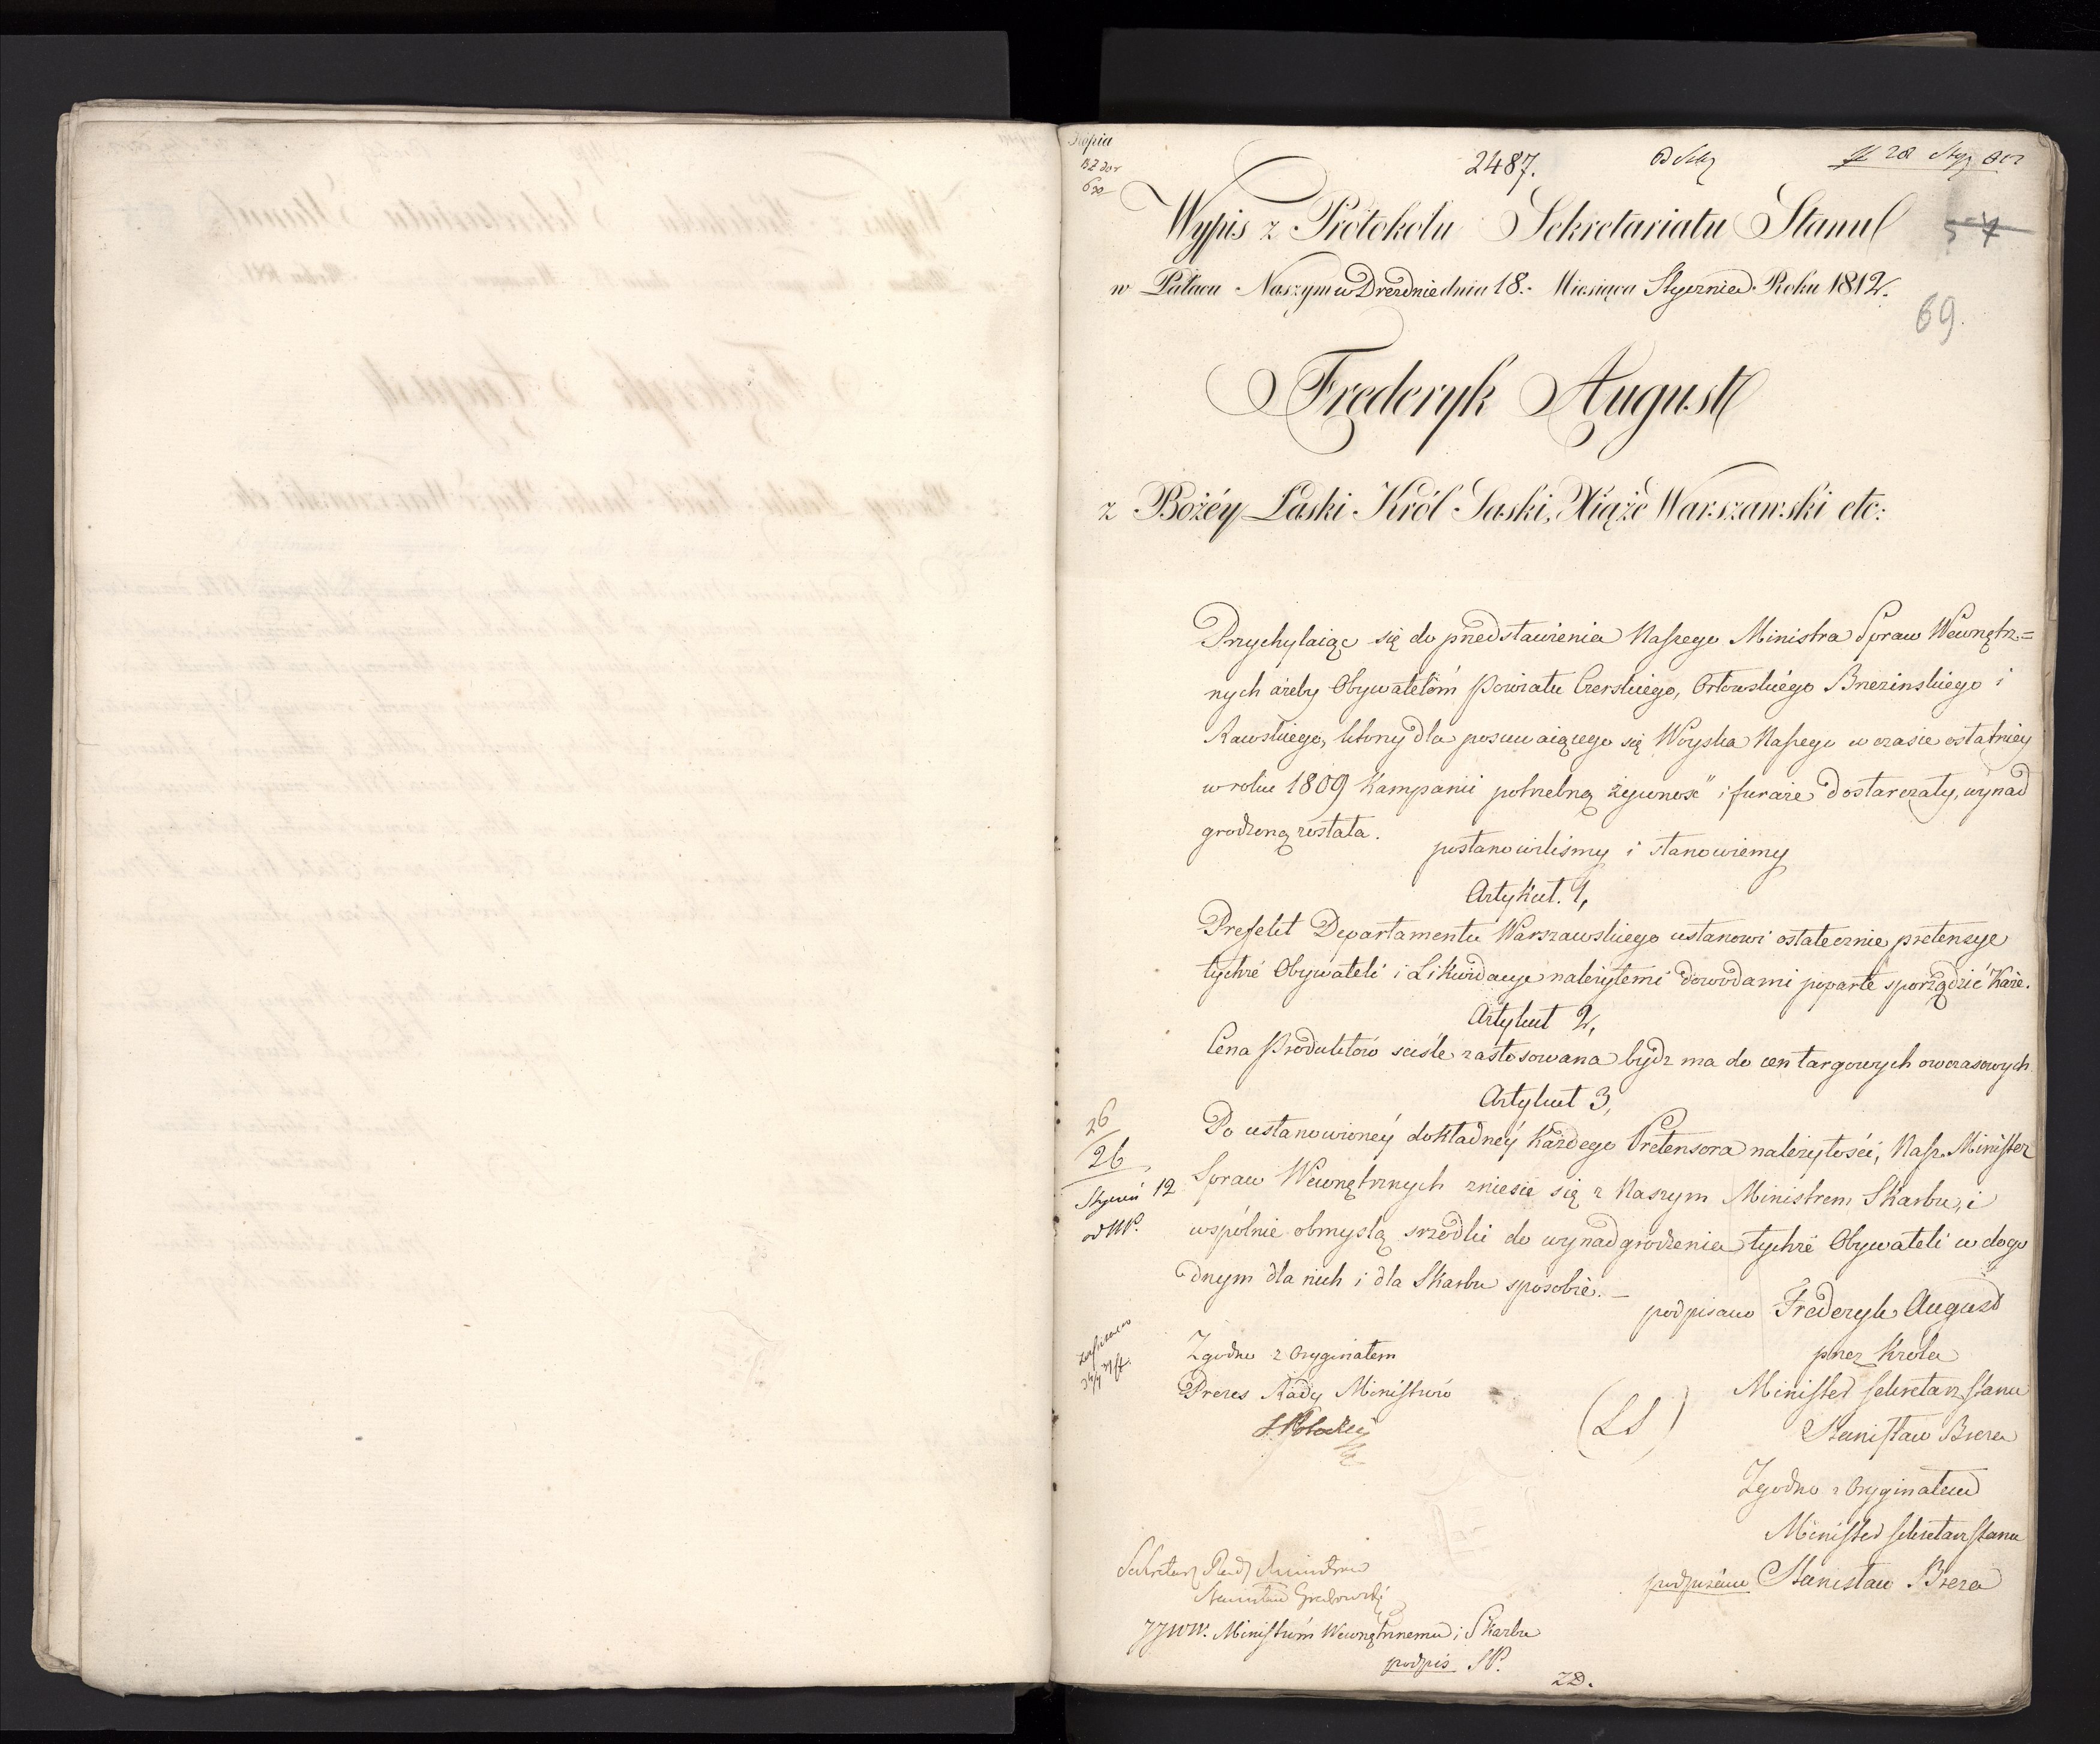 Kopia
2487.
28 Sty 812
Wypis z Protokołu Sekretariatu Stanu
57
w Pałacu Naszym w Dreźnie dnia 18. Miesiąca Stycznia Roku 1812.
69.
Frederyk August
z Bożéy Łaski Król Saski, Xiążę Warszawski etc:
Przychylaiąc się do przedstawienia Naszego Ministra Spraw Wewnętrz=
nych ażeby Obywatelóm Powiatu Czerskiego, Orłowskiégo Brzezinskiego i
Rawskiego, którzy dla posuwaiącego się Woyska Naszego w czasie ostatniey
w roku 1809 Kampanii potrzebną żywność i furaże dostarczały, wynad
grodzoną została.
postanowilismy i stanowiemy
Artykuł. 1,
Prefekt Departamentu Warszawskiego ustanowi ostatecznie pretensye
tychże Obywateli i Likwidacye należytemi dowodami poparte sporządzić każe.
Artykuł 2,
Cena Produktów scisle zastosowana bydz ma do cen targowych owczasowych.
Artykuł 3,
Po ustanowionéy dokładnéy każdego Pretensora należytości, Nasz Minister
Spraw Wewnętrznych zniesie się z Naszym Ministrem Skarbu, i
wspólnie obmyślą srzodki do wynadgrodzenia tychże Obywateli w dogo
dnym dla nich i dla Skarbu sposobie. —
26
26
Styczeń 12
od MP.
podpisano Frederyk August
przez Krola
Minister Sekretarz Stanu
Stanisław Breza
Zgodno z Oryginałem
Prezes Rady Ministrów
S Potocki
(LS)
Zgodno z Oryginałem
Minister Sekretarz Stanu
podpisano Stanisław Breza
Sekretarz Rady Ministrów
Stanisław Grabowski
JJWW. Ministróm Wewnętrznemu i Skarbu
podpis SP.
ZD.